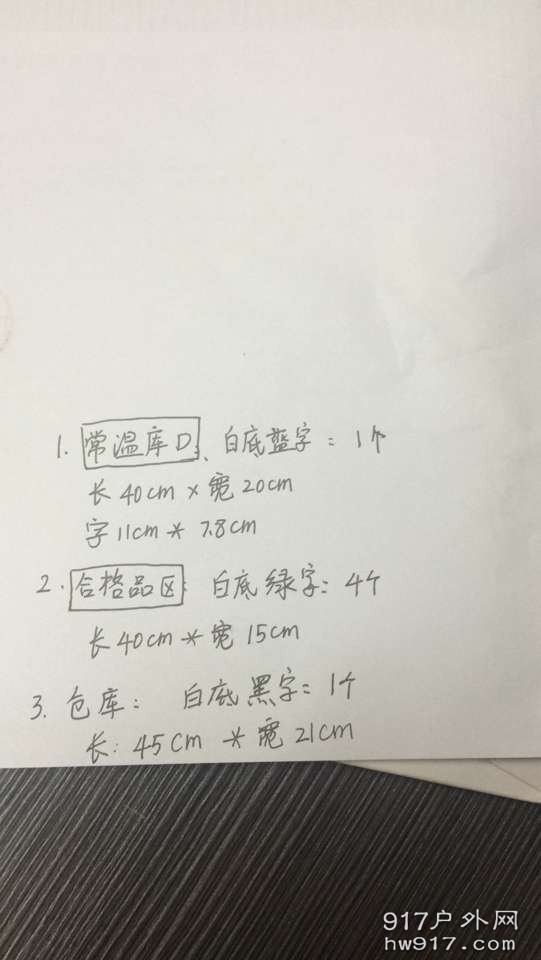 1. 常温库D、白底蓝字：1个
长40cm × 宽20cm
字11cm * 7.8cm
2. 合格品区：白底绿字：4个
长40cm * 宽15cm
3. 仓库：白底黑字：1个
长：45cm * 宽21cm
917户外网
hw917.com